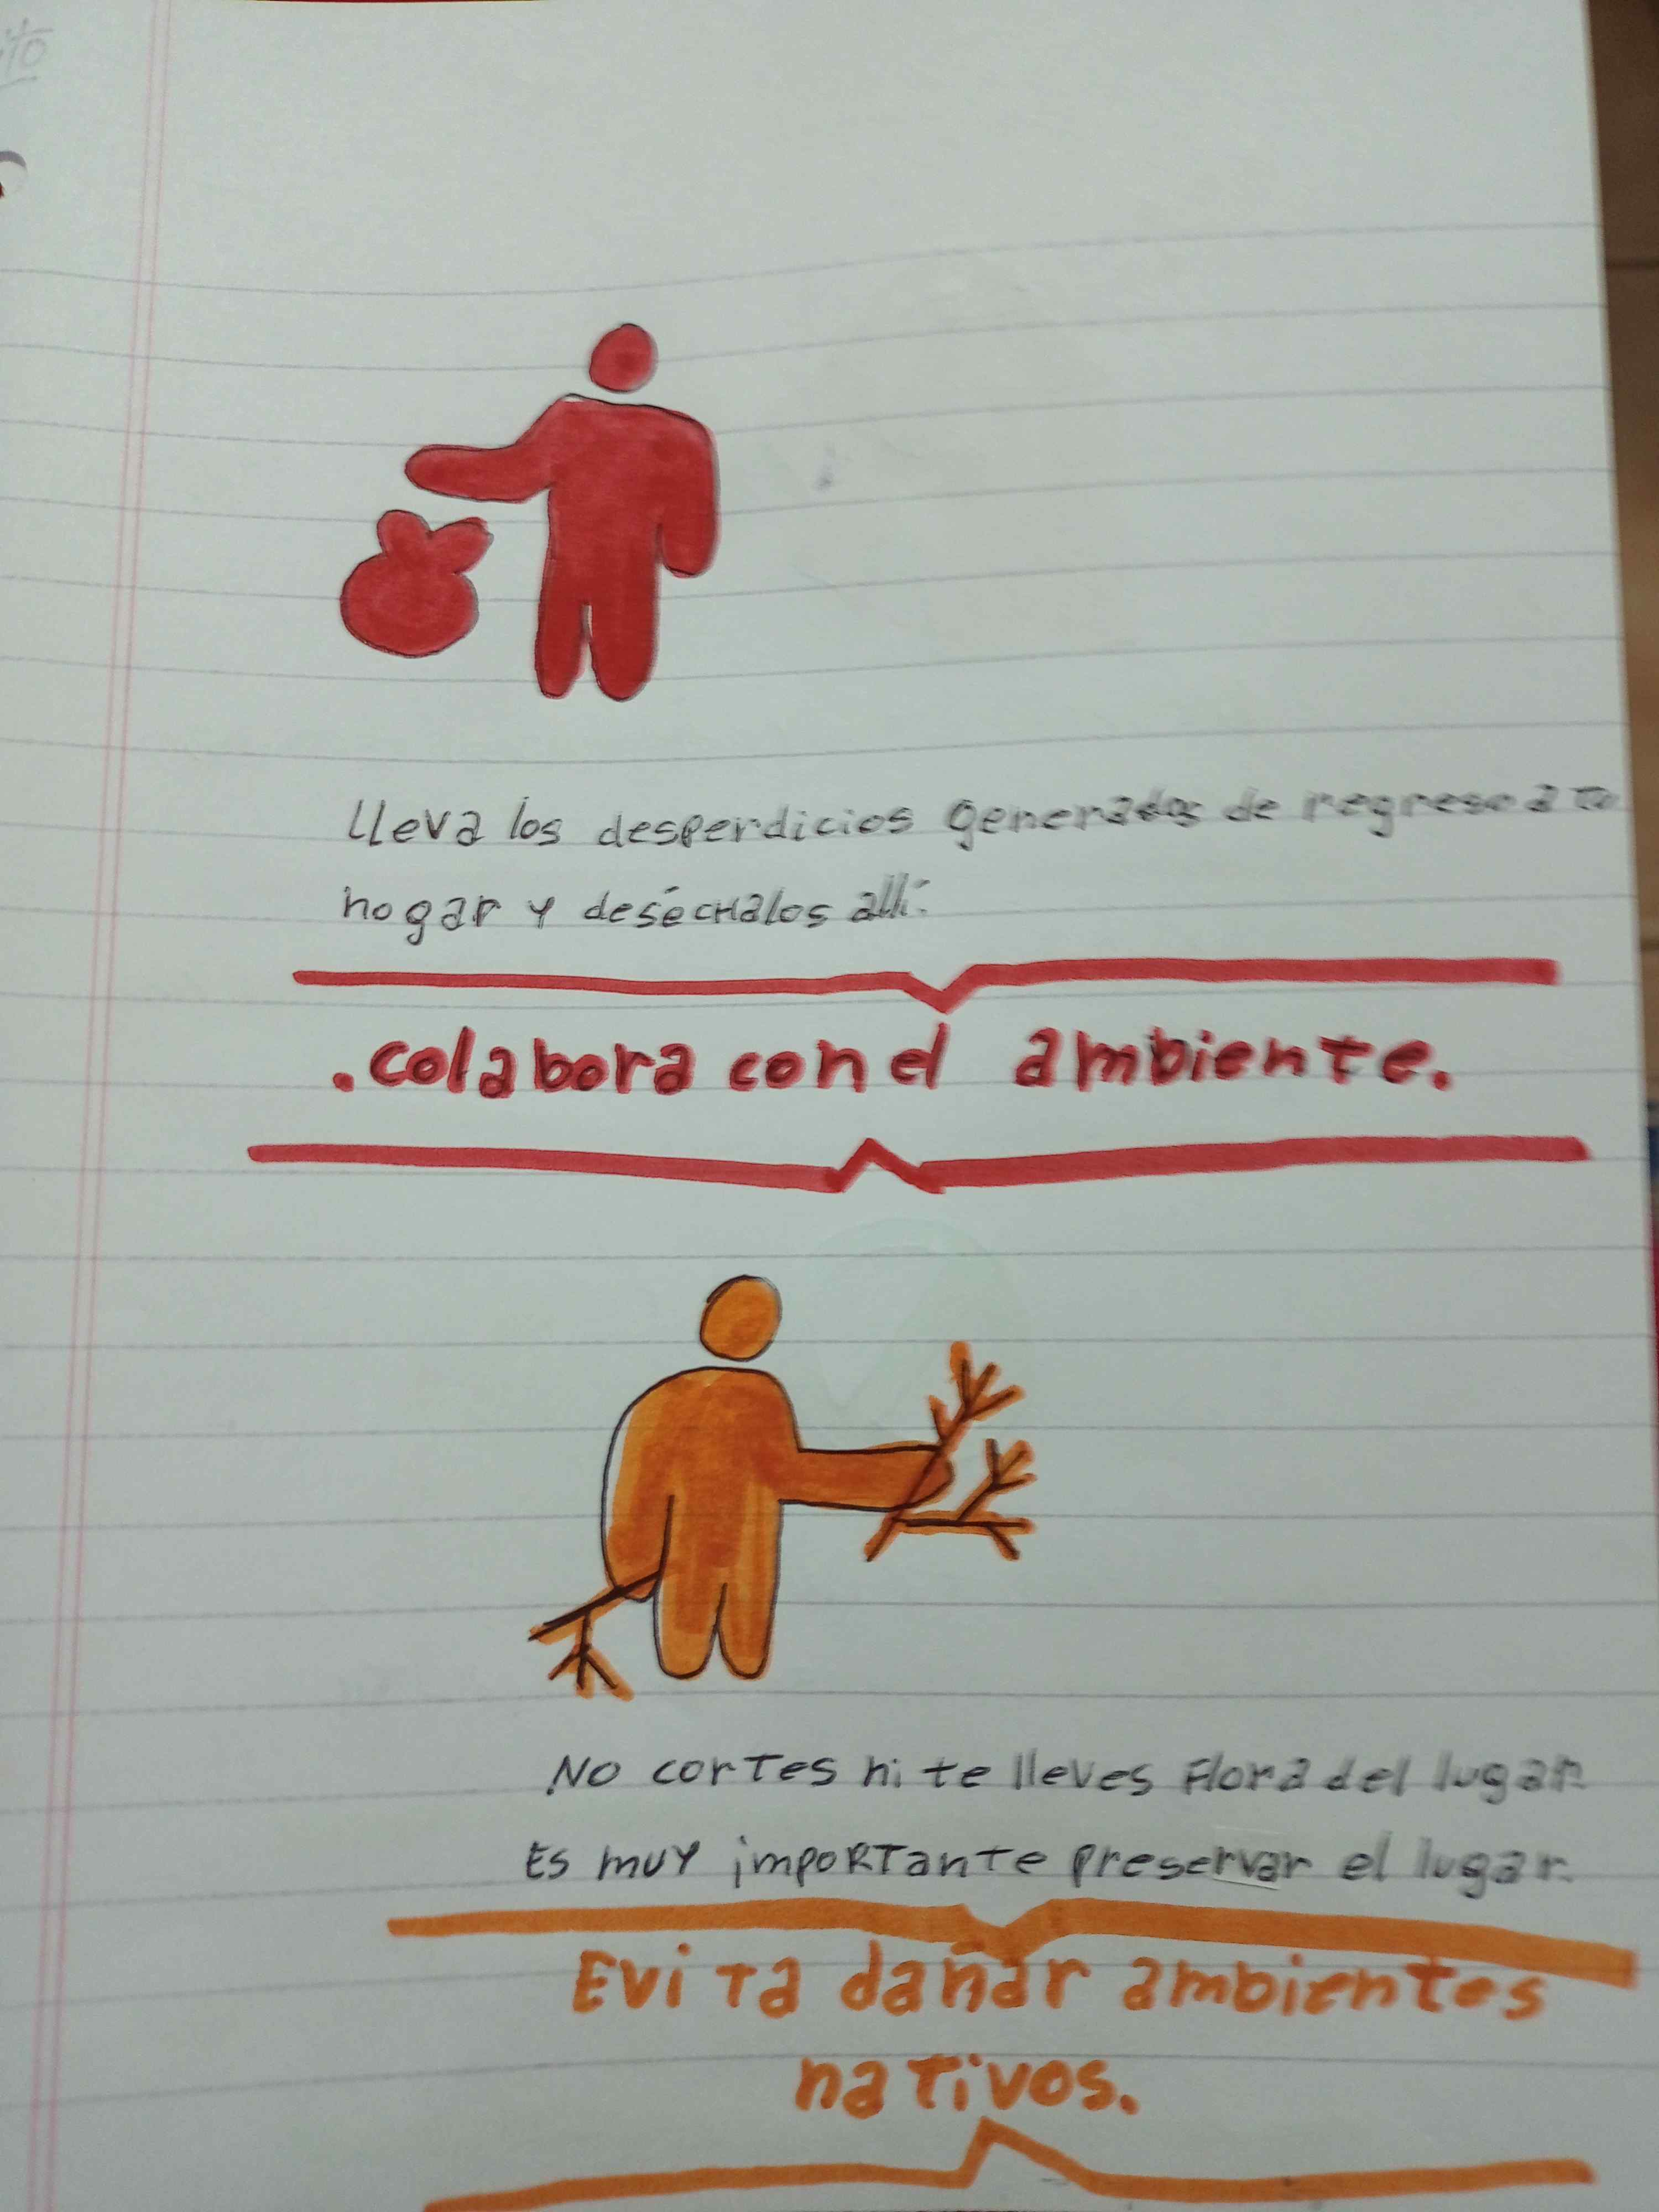 Lleva los desperdicios generados de regreso a tu
hogar y deséchalos allí.
.colabora con el ambiente.
No cortes ni te lleves flora del lugar.
Es muy importante preservar el lugar.
Evita dañar ambientes
nativos.